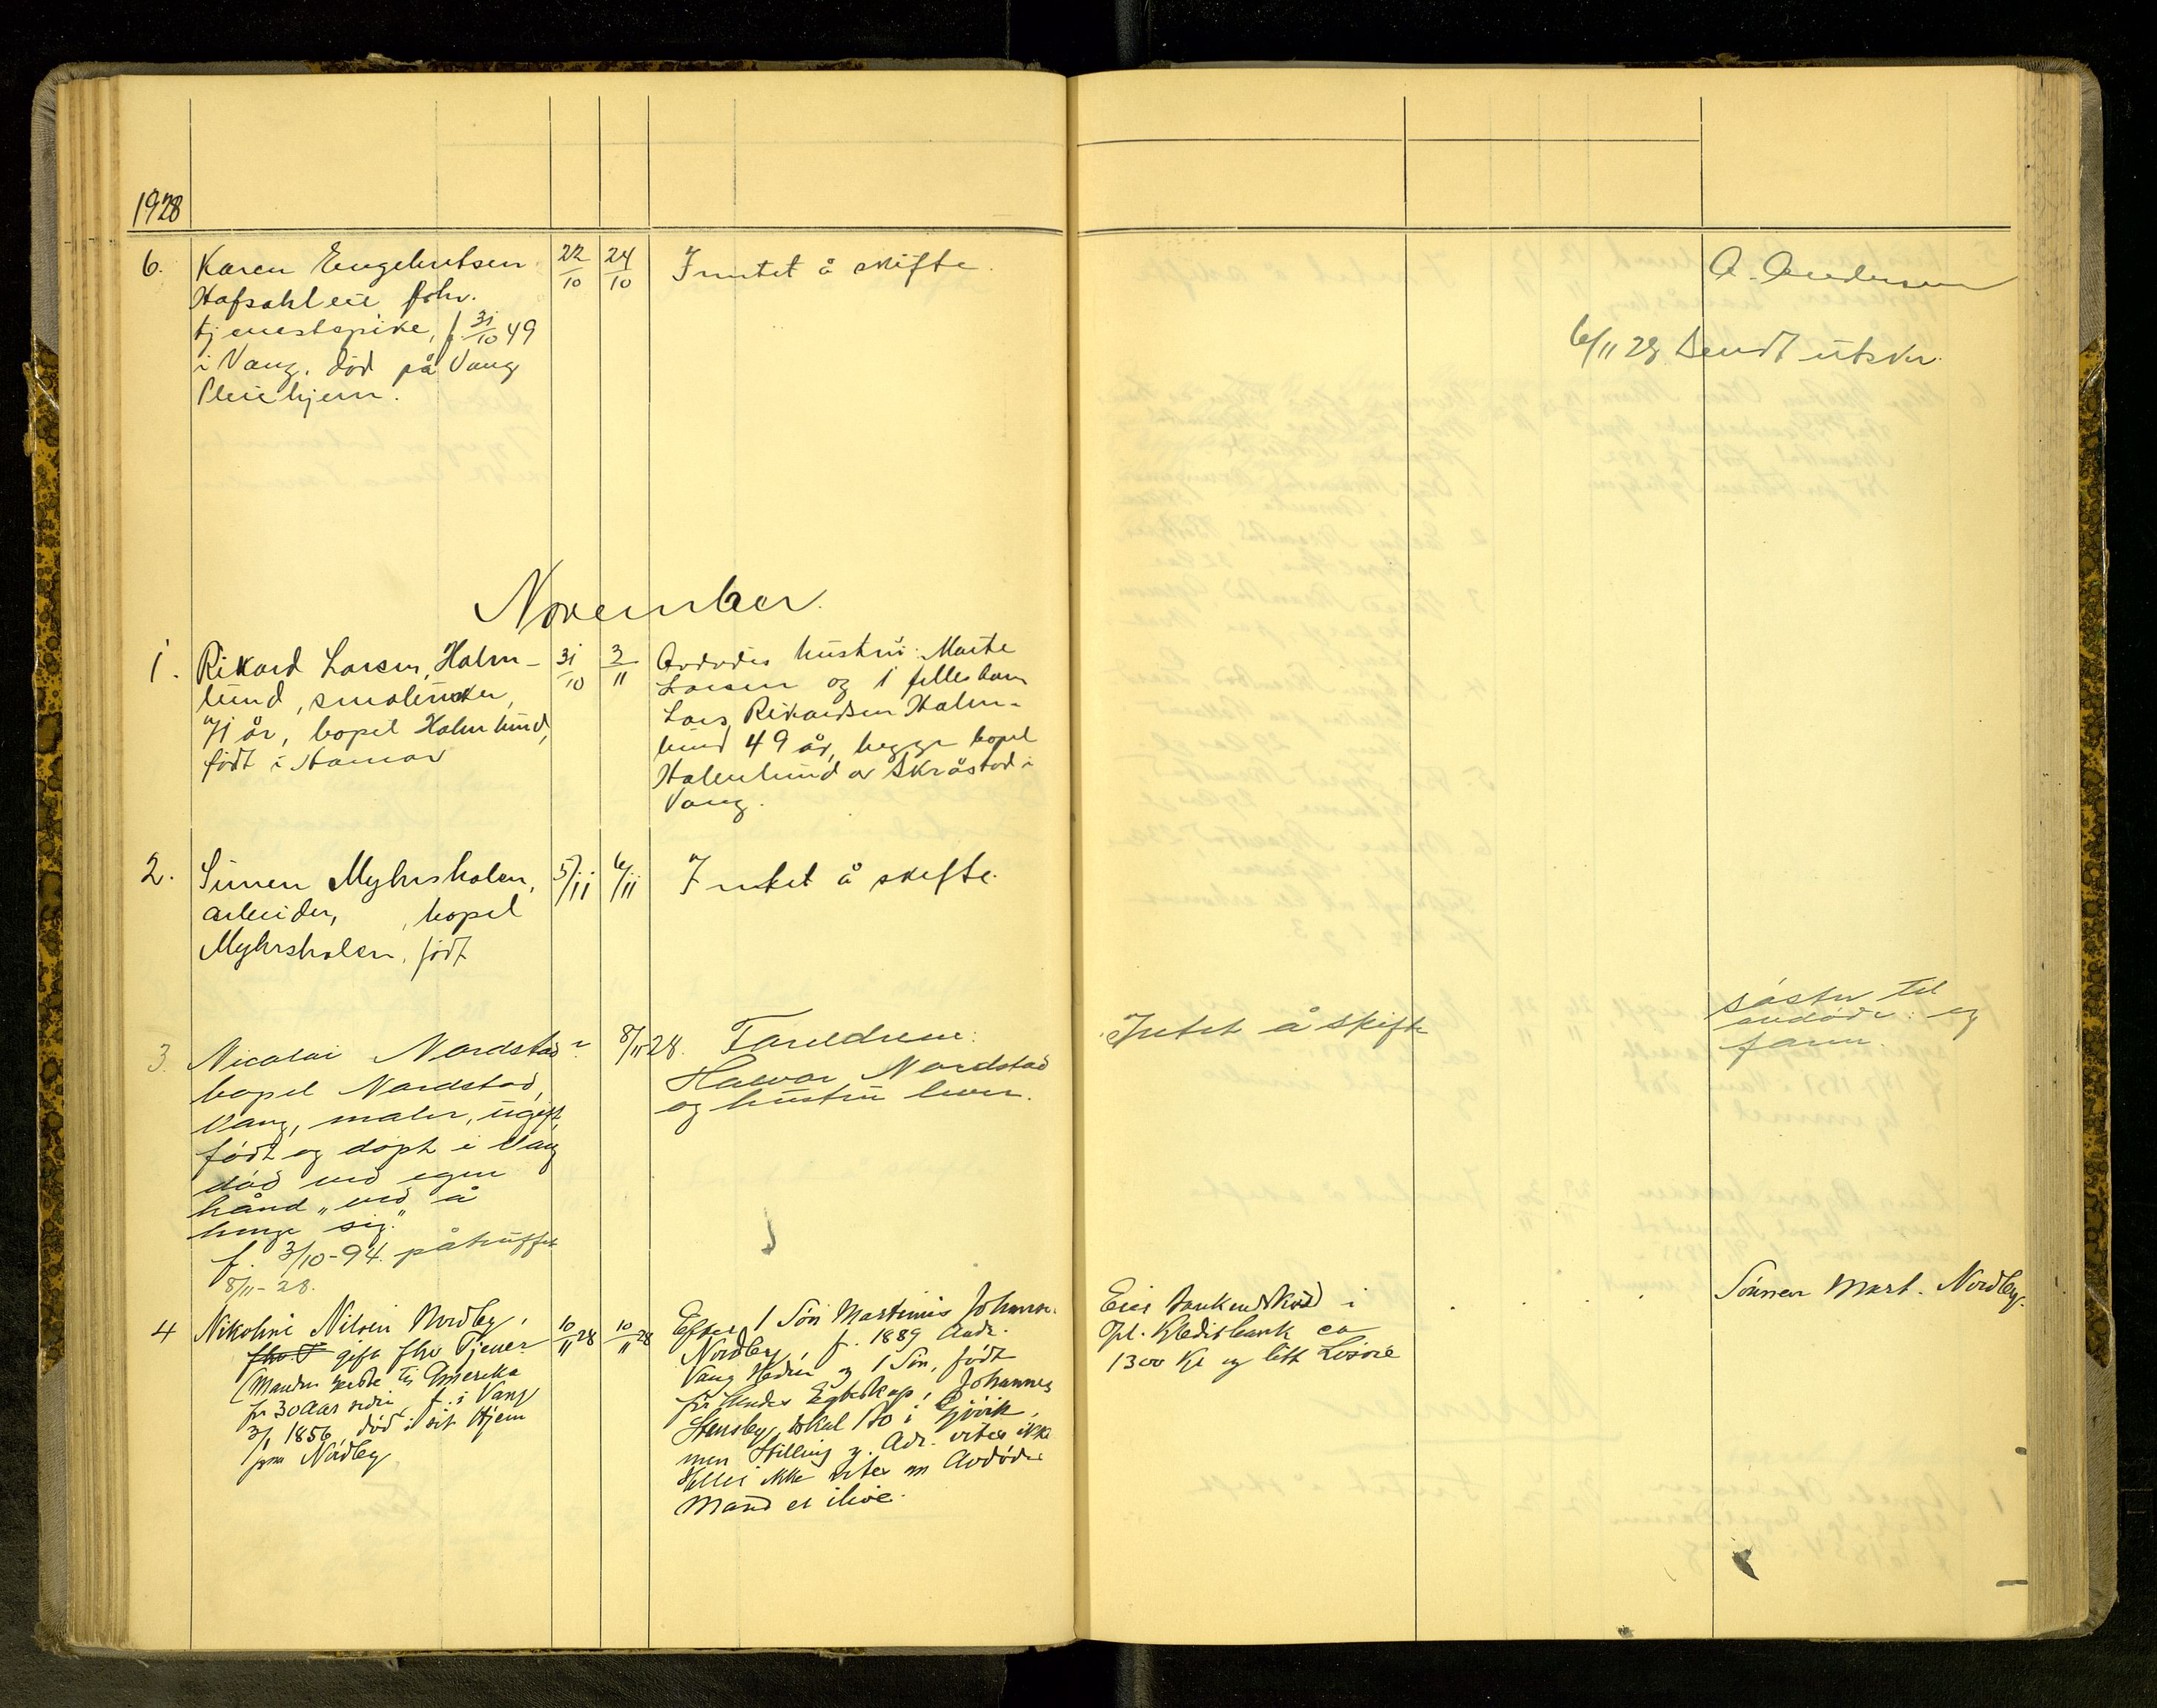 1928
6. Karen Engebretsen 22/10 24/10 Intet å skifte. A. Andersen
Hafsahleie, fhv.
tjenestepike, f. 31/10 49
i Vang, død på Vang
Pleiehjem.
6/11 28 Sendt utskr.
November.
1. Rikard Larsen, Halm- 31/10 3/11 Avdødes hustru: Marte
lund, småbruker, Larsen og 1 felles barn
71 år, bopel Halmlund, Lars Rikardsen Halm-
født i Hamar lund 49 år, begge bopel
Halmlund av Skråstad i
Vang.
2. Simen Myhrsholen, 5/11 6/11 Intet å skifte.
arbeider, , bopel
Myhrsholen, født
3. Nicolai Nordstad ? 8/11 28. Foreldrene: Intet å skifte søster til
bopel Nordstad, Halvor Nordstad avdøde: og
Vang, maler, ugift, og hustru lever. farm.
født og døpt i Vang
død ved egen
hånd „ved å
henge sig."
f. 3/10-94. påtruffet
8/11-28.
4 Nikoline Nilsen Nordby, 10/11 28 10/11 28 Efter 1 Søn Martinius Johann. Eier Bankindskud i Sønnen Mart. Nordby.
fhv. T gift fhv Tjener Nordby, f. 1889 Andr. Opl. Kreditbank ca
(Manden reiste til Amerika Vang Hedm og 1 Søn, født 1300 Kr og litt Løsøre
for 30 Aar siden, f. i Vang før hendes Egteskap, Johannes
3/1 1856, død i sit Hjem Stensby, skal bo i Gjøvik,
Nordby men Stilling og Adr. vites ikke
Heller ikke vites om Avdødes
Mand er ilive.